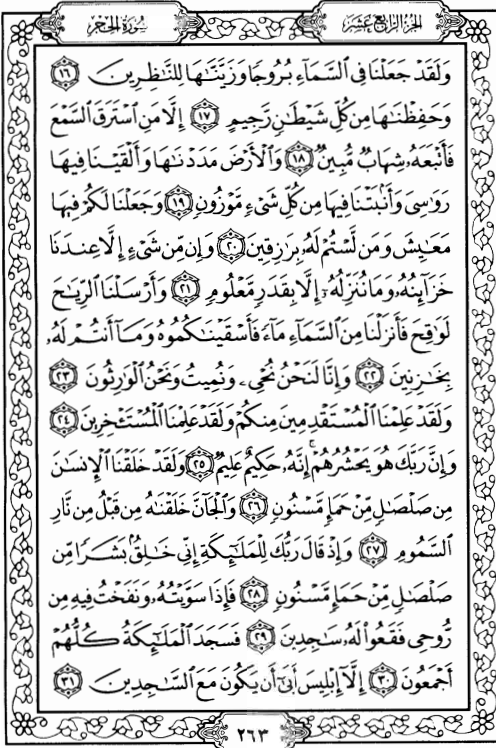 سُورَةُ الحِجْرِ
الجُزْءُ الرَّابِعَ عَشَرَ
وَلَقَدْ جَعَلْنَا فِي السَّمَاءِ بُرُوجًا وَزَيَّنَّاهَا لِلنَّاظِرِينَ ١٦
وَحَفِظْنَاهَا مِن كُلِّ شَيْطَانٍ رَّجِيمٍ ١٧ إِلَّا مَنِ اسْتَرَقَ السَّمْعَ
فَأَتْبَعَهُ شِهَابٌ مُّبِينٌ ١٨ وَالْأَرْضَ مَدَدْنَاهَا وَأَلْقَيْنَا فِيهَا
رَوَاسِيَ وَأَنبَتْنَا فِيهَا مِن كُلِّ شَيْءٍ مَّوْزُونٍ ١٩ وَجَعَلْنَا لَكُمْ فِيهَا
مَعَايِشَ وَمَن لَّسْتُمْ لَهُ بِرَازِقِينَ ٢٠ وَإِن مِّن شَيْءٍ إِلَّا عِندَنَا
خَزَائِنُهُ وَمَا نُنَزِّلُهُ إِلَّا بِقَدَرٍ مَّعْلُومٍ ٢١ وَأَرْسَلْنَا الرِّيَاحَ
لَوَاقِحَ فَأَنزَلْنَا مِنَ السَّمَاءِ مَاءً فَأَسْقَيْنَاكُمُوهُ وَمَا أَنتُمْ لَهُ
بِخَازِنِينَ ٢٢ وَإِنَّا لَنَحْنُ نُحْيِي وَنُمِيتُ وَنَحْنُ الْوَارِثُونَ ٢٣
وَلَقَدْ عَلِمْنَا الْمُسْتَقْدِمِينَ مِنكُمْ وَلَقَدْ عَلِمْنَا الْمُسْتَأْخِرِينَ ٢٤
وَإِنَّ رَبَّكَ هُوَ يَحْشُرُهُمْ إِنَّهُ حَكِيمٌ عَلِيمٌ ٢٥ وَلَقَدْ خَلَقْنَا الْإِنسَانَ
مِن صَلْصَالٍ مِّنْ حَمَإٍ مَّسْنُونٍ ٢٦ وَالْجَانَّ خَلَقْنَاهُ مِن قَبْلُ مِن نَّارِ
السَّمُومِ ٢٧ وَإِذْ قَالَ رَبُّكَ لِلْمَلَائِكَةِ إِنِّي خَالِقٌ بَشَرًا مِّن
صَلْصَالٍ مِّنْ حَمَإٍ مَّسْنُونٍ ٢٨ فَإِذَا سَوَّيْتُهُ وَنَفَخْتُ فِيهِ مِن
رُّوحِي فَقَعُوا لَهُ سَاجِدِينَ ٢٩ فَسَجَدَ الْمَلَائِكَةُ كُلُّهُمْ
أَجْمَعُونَ ٣٠ إِلَّا إِبْلِيسَ أَبَىٰ أَن يَكُونَ مَعَ السَّاجِدِينَ ٣١
٢٦٣